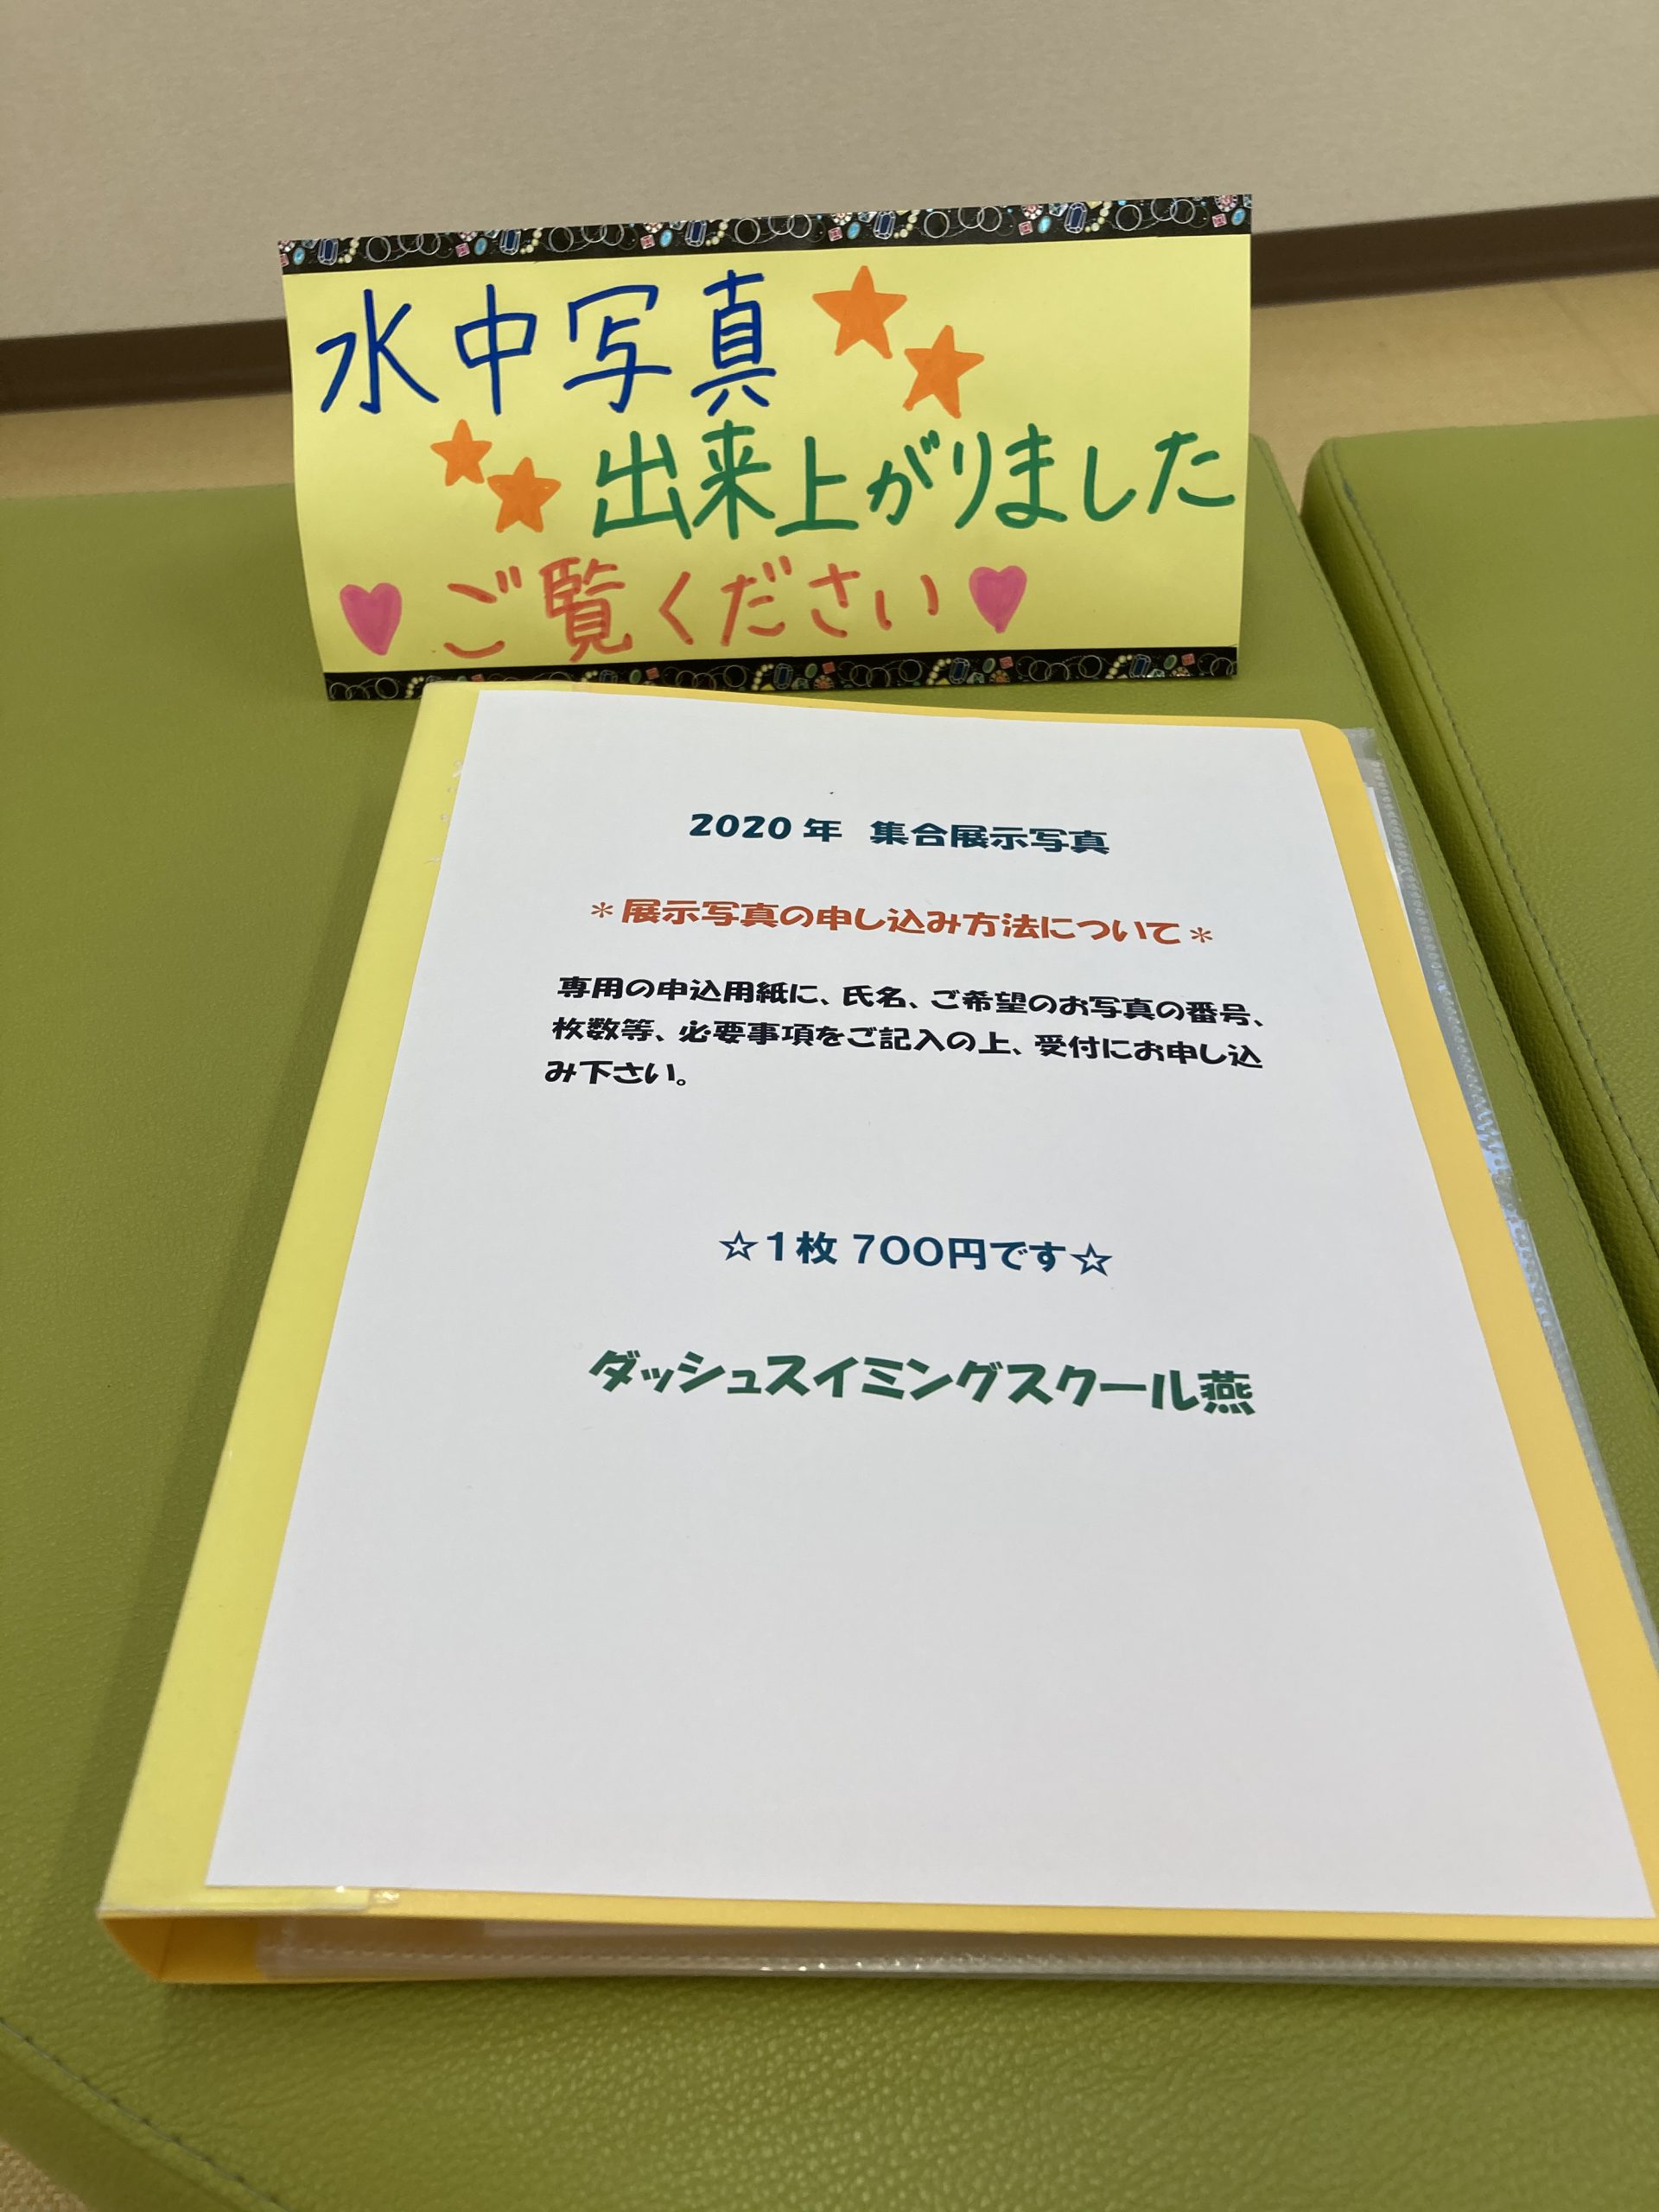 水中写真
出来上がりました
ご覧ください
2020年 集合展示写真
＊展示写真の申し込み方法について＊
専用の申込用紙に、氏名、ご希望のお写真の番号、
枚数等、必要事項をご記入の上、受付にお申し込
み下さい。
☆1枚 700円です☆
ダッシュスイミングスクール燕